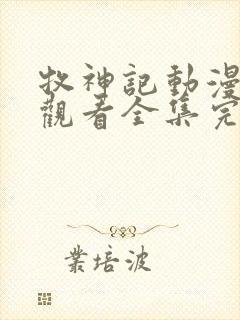 牧神記動漫
觀看全集完
業培波